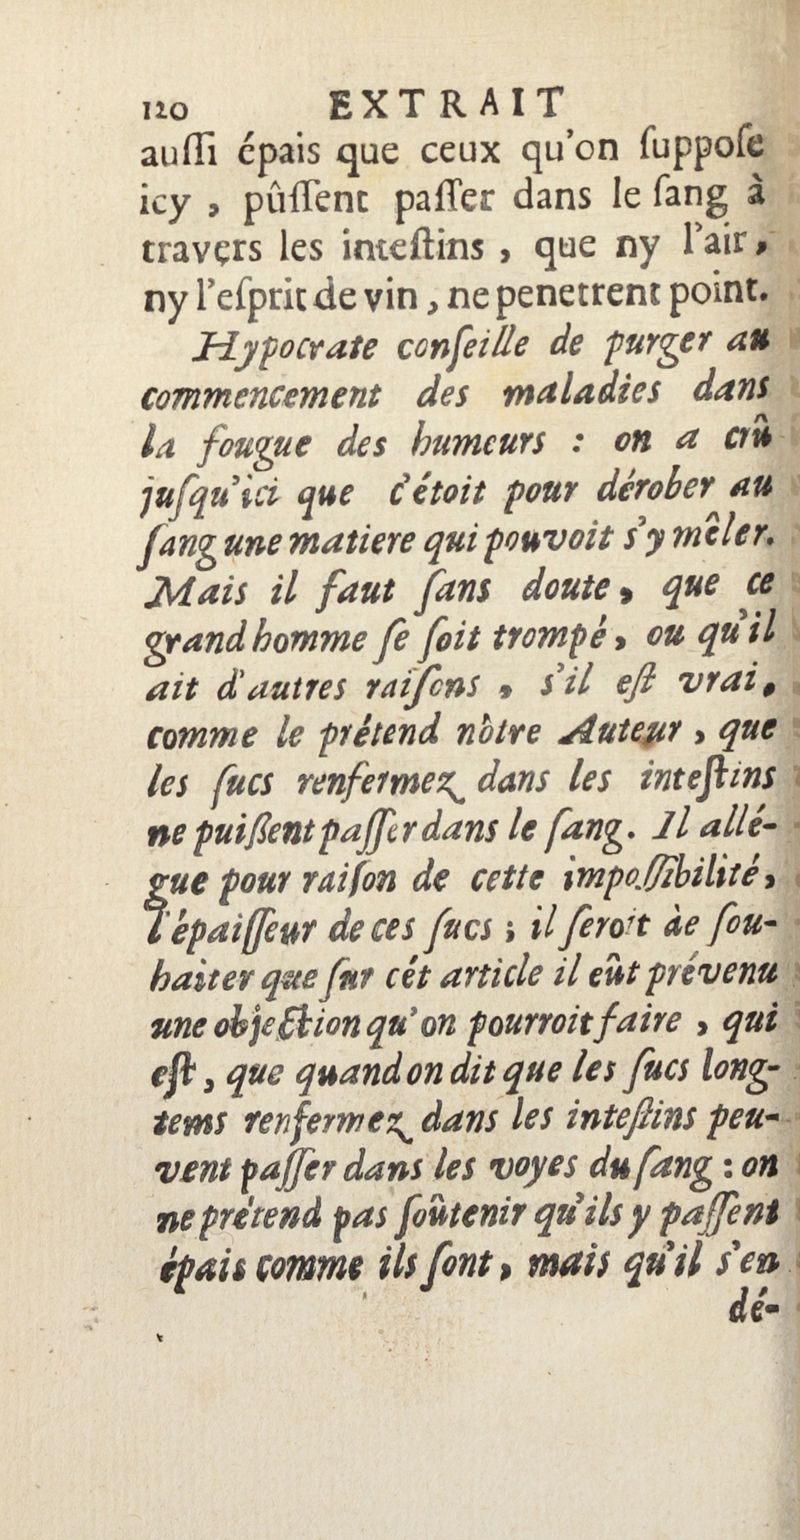 120 EXTRAIT
auſſi épais que ceux qu'on ſuppoſe
icy , pûſſent paſſer dans le ſang à
travers les inteſtins , que ny l'air ,
ny l'eſprit de vin , ne penetrent point.
Hypocrate conſeille de purger au
commencement des maladies dans
la fougue des humeurs : on a crû
juſqu'ici que c'étoit pour dérober au
ſang une matiere qui pouvoit s'y mêler.
Mais il faut ſans doute , que ce
grand homme ſe ſoit trompé , ou qu'il
ait d'autres raiſons , s'il eſt vrai ,
comme le prétend nôtre Auteur , que
les ſucs renfermez dans les inteſtins
ne puiſſent paſſer dans le ſang. Il allé-
gue pour raiſon de cette impoſſibilité ,
l'épaiſſeur de ces ſucs ; il ſeroit de ſou-
haiter que ſur cét article il eût prévenu
une objection qu'on pourroit faire , qui
eſt , que quand on dit que les ſucs long-
tems renfermez dans les inteſtins peu-
vent paſſer dans les voyes du ſang : on
ne prétend pas ſoûtenir qu'ils y paſſent
épais comme ils ſont , mais qu'il s'en
dé-